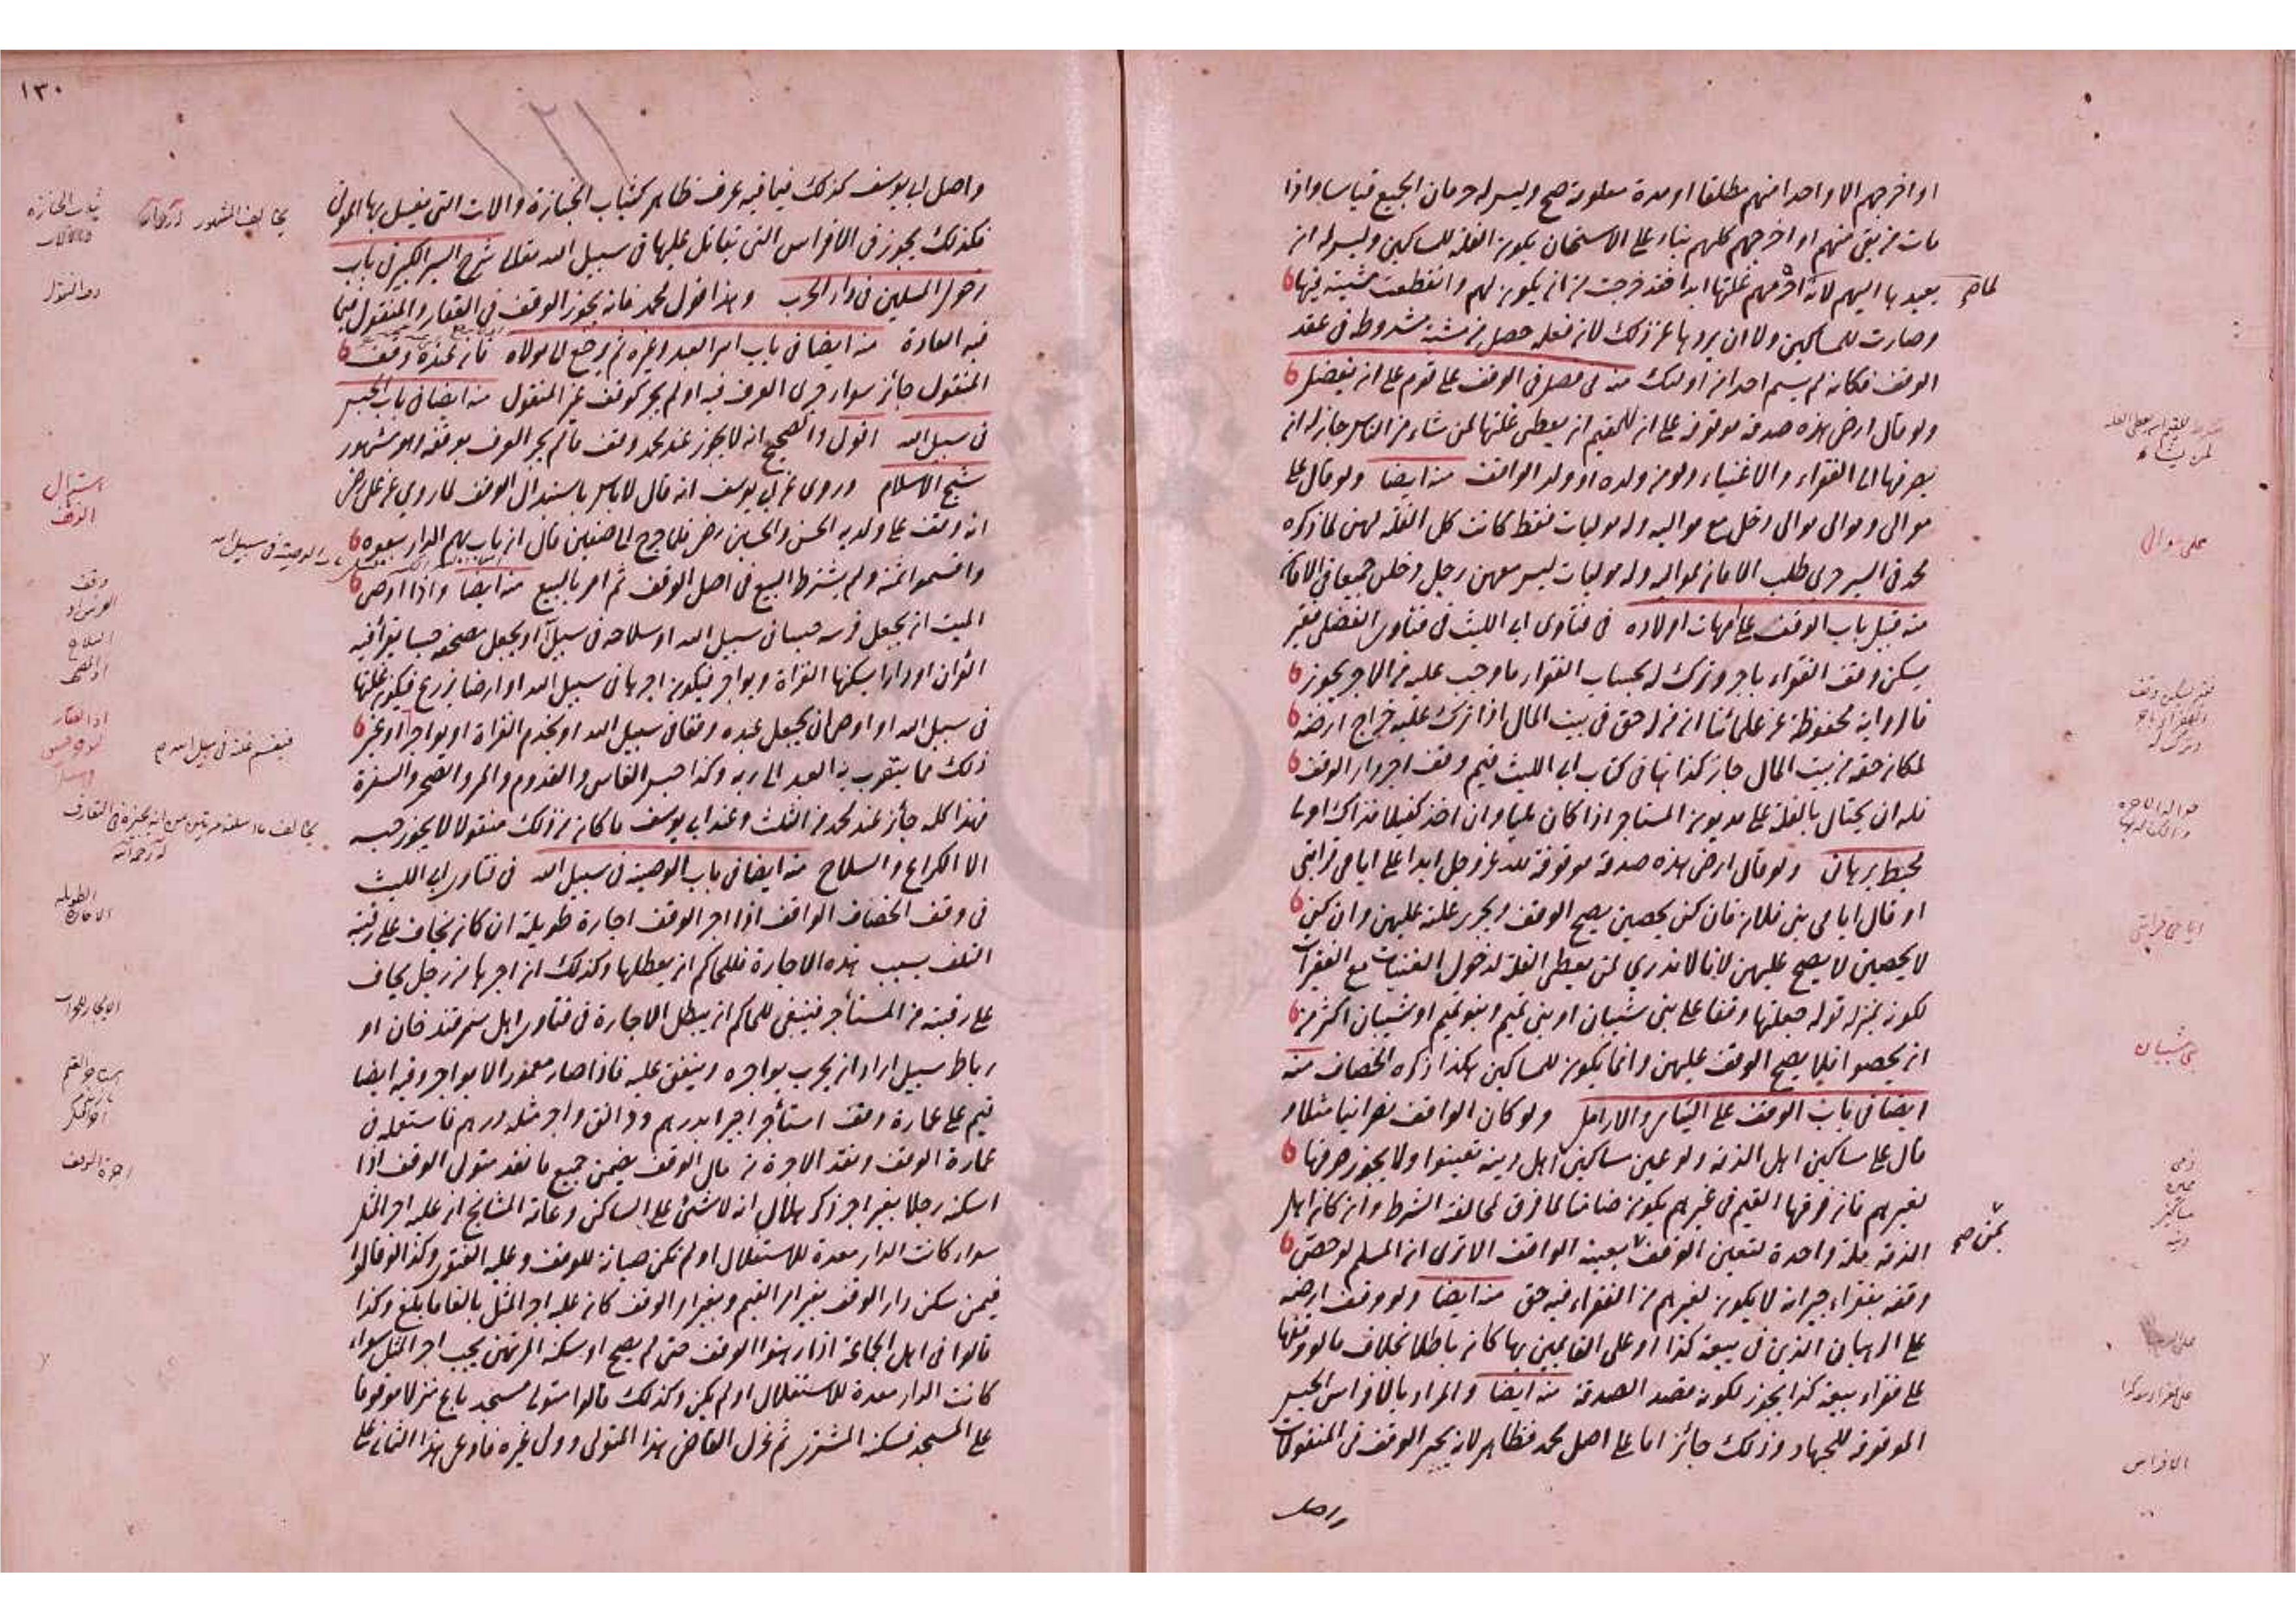 او اخرجهم الا واحدا منهم مطلقا او مدة معلومة صح وليس له حرمان الجميع قياسا واذا
مات من بقي منهم او اخرجهم كلهم بناء على الاستحسان يكون الغلة للمساكين وليس له ان
يعيدها اليهم لانه احرمهم غلتها ابدا فقد خرجت من ان يكون لهم وانقطعت مشيته فيها
وصارت للمساكين ولا ان يردها عن ذلك لان فعله حصل من مشية مشروطة في عقد
الوقف فكانه لم يسم احدا من اولئك منه في فصل في الوقف على قوم على ان يفضل
ولو قال ارضي هذه صدقة موقوفة على ان للقيم ان يعطي غلتها لمن شاء من الناس جاز له ان
يصرفها الى الفقراء والاغنياء ولو من ولده او ولد الواقف منه ايضا ولو قال على
موالي وموالي موالي دخل مع مواليه وله موليات فقط كانت كل الغلة لهن لما ذكره
محمد في السير حربي طلب الامان لمواليه وله موليات ليس معهن رجل دخلن جميعا في الامان
منه قبيل باب الوقف على امهات اولاده في فتاوى ابي الليث في فتاوى الفضلي فقير
يسكن وقف الفقراء باجر وترك له بحساب الفقراء ما وجب عليه من الاجر يجوز
فالرواية محفوظة عن علمائنا ان من له حق في بيت المال اذا ترك عليه خراج ارضه
لمكان حقه من بيت المال جاز كذا هنا في كتاب ابي الليث قيم وقف اجر دار الوقف
فله ان يحتال بالغلة على مديون المستاجر اذا كان مليا وان اخذ كفيلا فذاك اولى
محيط برهاني ولو قال ارضي هذه صدقة موقوفة لله عز وجل ابدا على ايامى قرابتي
او قال ايامى بني فلان فان كن يحصين يصح الوقف ويجري غلته عليهن وان كن
لا يحصين لا يصح عليهن لانا لا ندري لمن يعطي الغلة لدخول الغنيات مع الفقيرات
لكونه بمنزلة قوله جعلتها وقفا على بني شيبان او بني تميم وبنو تميم او شيبان اكثر من
ان يحصوا فلا يصح الوقف عليهن وانما يكون للمساكين هكذا ذكره الخصاف منه
ايضا في باب الوقف على اليتامى والارامل ولو كان الواقف نصرانيا مثلا و
قال على مساكين اهل الذمة ولو عين مساكين اهل دينه تعينوا ولا يجوز صرفها
لغيرهم فان فرقها القيم في غيرهم يكون ضامنا لما فرق لمخالفة الشرط وان كان اهل
الذمة ملة واحدة لتعين الوقف بمن يعينه الواقف الا ترى ان المسلم لو خص
وقفه بفقراء جيرانه لا يكون لغيرهم من الفقراء فيه حق منه ايضا ولو وقف ارضه
على الرهبان الذين في بيعة كذا او على القائمين بها كان باطلا بخلاف ما لو وقفها
على فقراء بيعة كذا يجوز لكونه قصد الصدقة منه ايضا والمراد بالافراس الحبس
الموقوفة للجهاد وذلك جائز اما على اصل محمد فظاهر لانه يجيز الوقف في المنقولات
واصل
على موالي
ايامى قرابتي
بني شيبان
الافراس
١٣٠
١٢١
واصل ابي يوسف كذلك فيما فيه عرف ظاهر كثياب الجنازة والالات التي يغسل بها الموتى
فكذلك يجوز في الافراس التي تقاتل عليها في سبيل الله تعالى شرح السير الكبير في باب
دخول المسلمين في دار الحرب وهذا قول محمد فانه يجوز الوقف في العقار والمنقول فيما
فيه العادة منه ايضا في باب اسر العبد وغيره ثم يرجع الى مولاه فان عنده وقف
المنقول جائز سواء جرى العرف فيه او لم يجر كوقف غير المنقول منه ايضا في باب الحبس
في سبيل الله اقول والصحيح انه لا يجوز عند محمد وقف ما لم يجر العرف بوقفه وهو مشهور
شيخ الاسلام وروي عن ابي يوسف انه قال لا باس باستبدال الوقف لما روي عن علي رض
انه وقف على ولديه الحسن والحسين رضي فلما خرج الى صفين قال ان ناب بهم الدار بيعوه
واقسموا ثمنه ولم يشترط البيع في اصل الوقف ثم امر بالبيع منه ايضا واذا اوصى
الميت ان يجعل فرسه حبسا في سبيل الله او سلاحه في سبيل او يجعل مصحفه حبسا يقرأ فيه
القران او دارا يسكنها الغزاة ويواجر فيكون اجرها في سبيل الله او ارضا يزرع فيكون غلتها
في سبيل الله او اوصى ان يجعل عبده وقفا في سبيل الله او يخدم الغزاة او يواجر او غير
ذلك مما يتقرب به العبد الى ربه وكذا حبس الفاس والقدوم والمر والصحن والسفرة
فهذا كله جائز عند محمد من الثلث وعند ابي يوسف ما كان من ذلك منقولا لا يجوز حبسه
الا الكراع والسلاح منه ايضا في باب الوصية في سبيل الله في فتاوى ابي الليث
في وقف الخصاف الواقف اذا اجر الوقف اجارة طويلة ان كان يخاف على رقبته
التلف بسبب هذه الاجارة فللحاكم ان يبطلها وكذلك ان اجرها من رجل يخاف
على رقبته من المستأجر فينبغي للحاكم ان يبطل الاجارة في فتاوى اهل سمرقند خان او
رباط سبيل اراد ان يخرب يواجره وينفق عليه فاذا صار معمورا لا يواجر وفيه ايضا
قيم على عمارة وقف استأجر اجيرا بدرهم ودانق واجر مثله درهم فاستعمله في
عمارة الوقف ونقد الاجرة من مال الوقف يضمن جميع ما نقد متولي الوقف اذا
اسكنه رجلا بغير اجر ذكر هلال انه لا شئ على الساكن وعامة المشايخ ان عليه اجر المثل
سواء كانت الدار معدة للاستغلال او لم تكن صيانة للوقف وعليه الفتوى وكذا قالوا
فيمن سكن دار الوقف بغير امر القيم وبغير امر الوقف كان عليه اجر المثل بالغا ما بلغ وكذا
قالوا في اهل الجماعة اذا رهنوا الوقف حتى لم يصح لو سكنه المرتهن يجب اجر المثل سواء
كانت الدار معدة للاستغلال او لم يكن وكذلك قالوا متولي مسجد باع منزلا موقوفا
على المسجد فسكنه المشتري ثم عزل القاضي هذا المتولي وولى غيره فادعى هذا الثاني على
ثياب الجنازة
يخالف المشهور
وقف المنقول
استبدال
الوقف
الاجارة الطويلة
اجرة الوقف